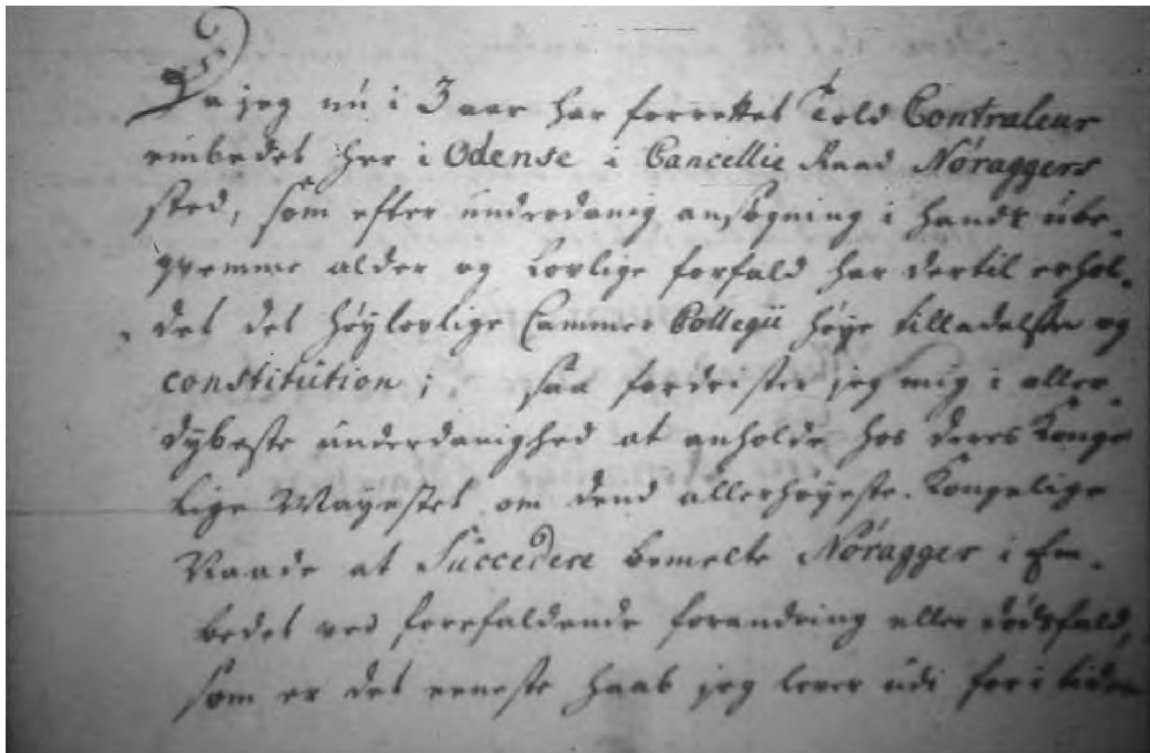 Da jeg nu i 3 aar har forrettet Told Contraleur
embedet her i Odense i Cancellie Raad Nøraggers
sted, som efter underdanig ansøgning i hands ube-
qvemme alder og Lovlige forfald har dertil erhol-
det det høylovlige Cammer Collegii høye tilladelse og
constitution; saa fordrister jeg mig i aller-
dybeste underdanighed at anholde hos deres Konge
lige Mayestet om dend allerhøyeste Kongelige
Naade at Succedere bemelte Nøragger i Em-
bedet ved forefaldende forandring eller dødsfald,
som er det eeneste haab jeg lever udi for i tiden